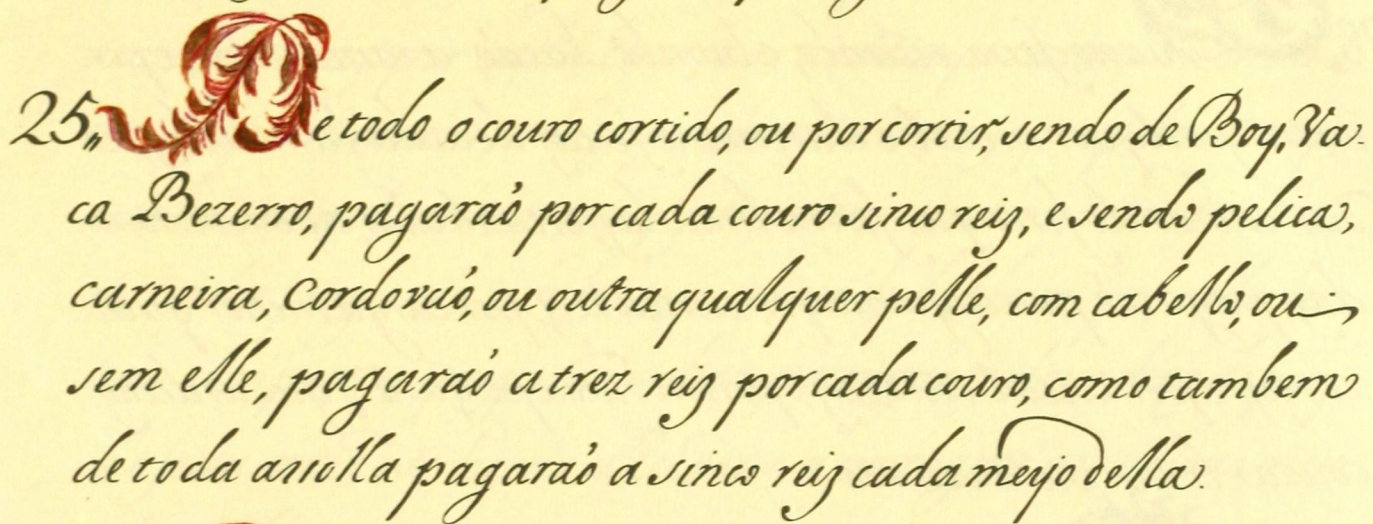 25,, De todo o couro cortido, ou por cortir, sendo de Boy, Va-
ca Bezerro, pagaraõ por cada couro sinco reiz, e sendo pelica,
carneira, Cordovaõ, ou outra qualquer pelle, com cabello, ou
sem elle, pagaraõ a trez reiz por cada couro, como tambem
de toda a solla pagaraõ a sinco reiz cada meyo della.